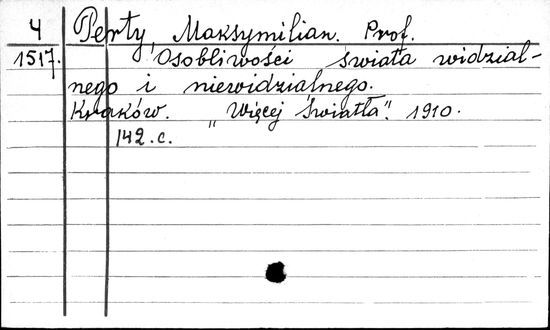 4 Perty, Maksymilian. Prof.
1517. Osobliwości świata widzial-
nego i niewidzialnego.
Kraków. „Więcej Światła". 1910.
142. c.